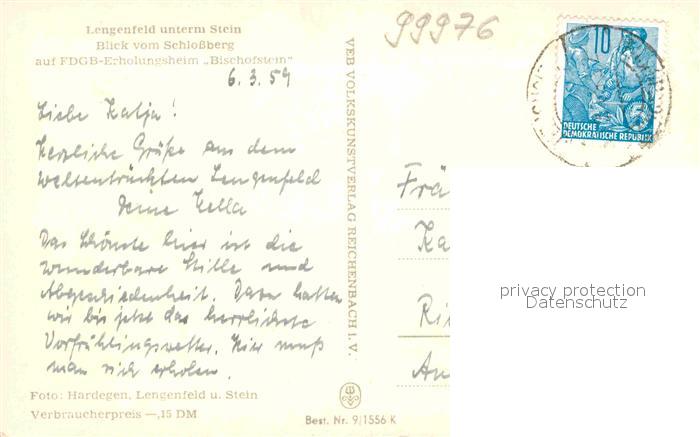 99976
Lengenfeld unterm Stein
Blick vom Schloßberg
auf FDGB-Erholungsheim „Bischofstein"
6.3.59
Liebe Katja!
Herzliche Grüße aus dem
weltentrückten Lengenfeld
Deine Hella
Das Schönste hier ist die
wunderbare Stille und
Abgeschiedenheit. Dazu hatten
wir bis jetzt das herrlichste
Vorfrühlingswetter. Hier muß
man sich erholen.
Foto: Hardegen, Lengenfeld u. Stein
Verbraucherpreis —,15 DM
VEB VOLKSKUNSTVERLAG REICHENBACH i. V.
Best. Nr. 9/1556 K
10
DEUTSCHE
DEMOKRATISCHE REPUBLIK
Frä
Ka
Ri
An
privacy protection
Datenschutz